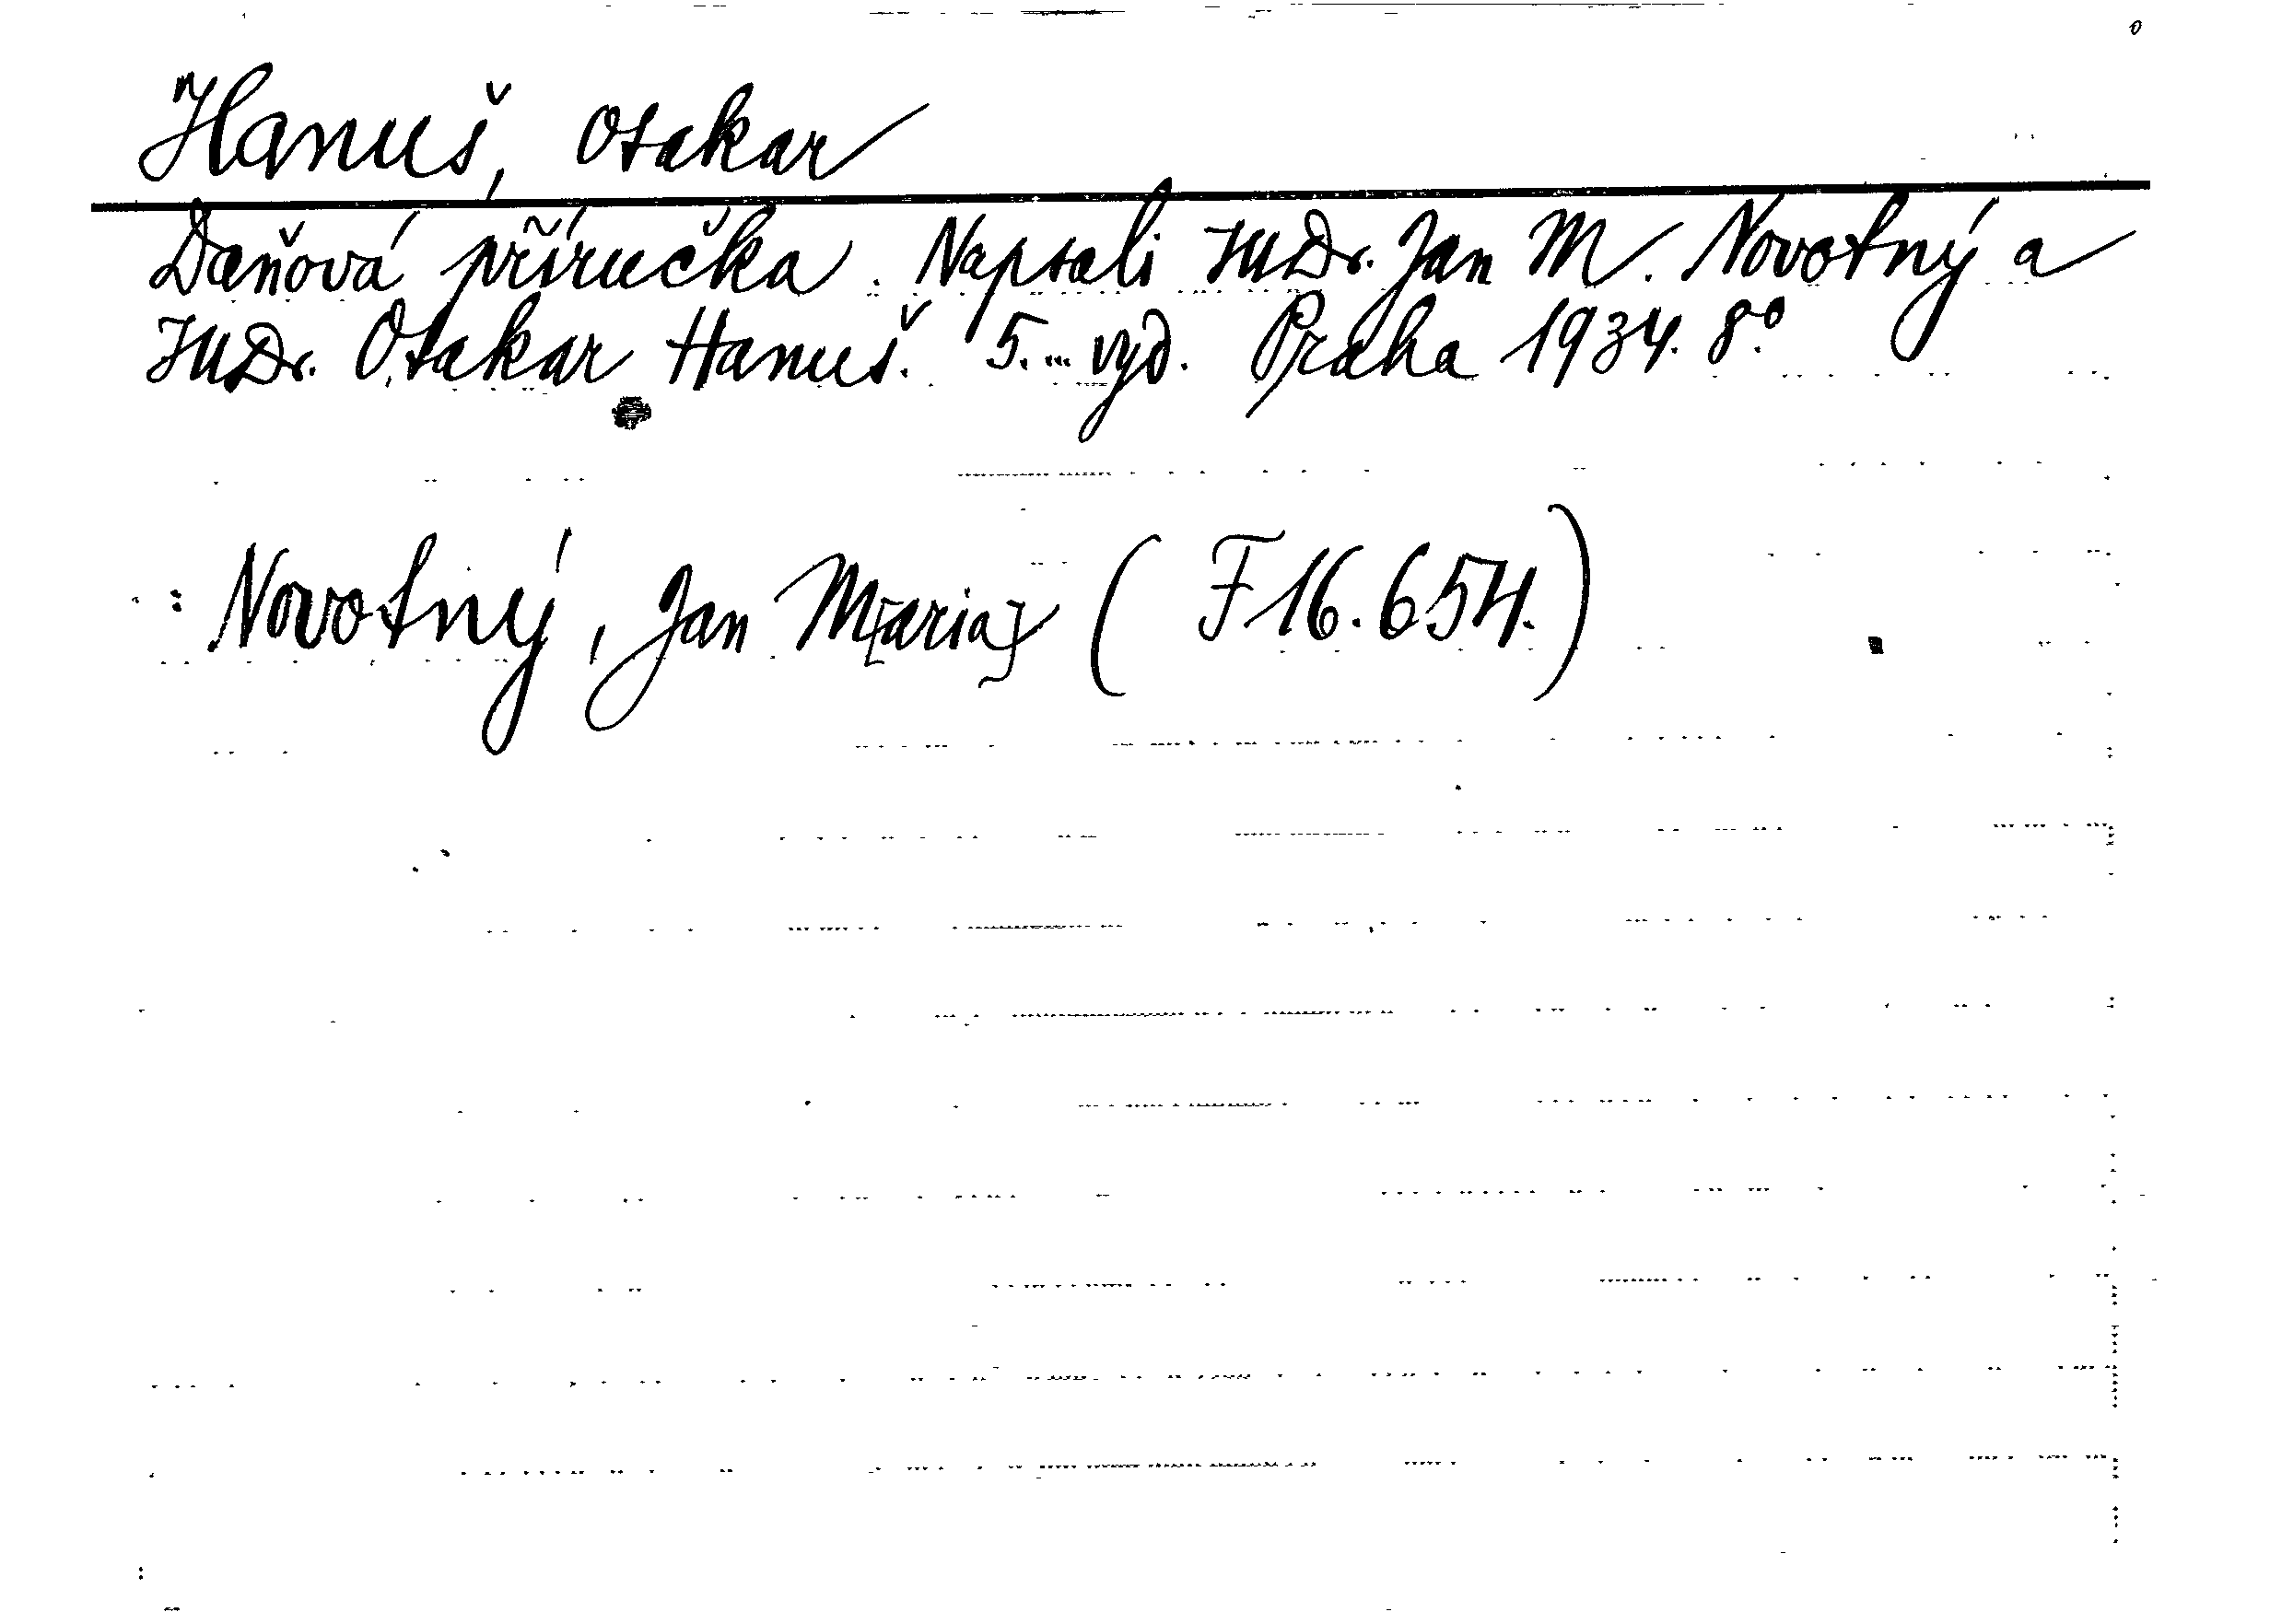 Hanuš, Otakar
Daňová příručka. Napsali JUDr. Jan M. Novotný a
JUDr. Otakar Hanuš. 5.... vyd. Praha 1934. 8°.
: Novotný, Jan M[aria] ( F 16.654.)